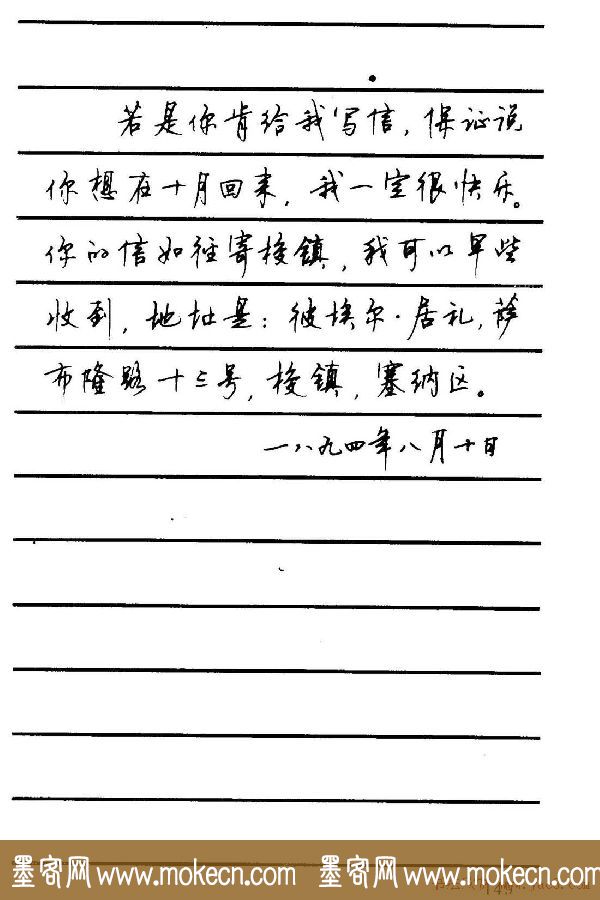 若是你肯给我写信，保证说
你想在十月回来，我一定很快乐。
你的信如径寄梭镇，我可以早些
收到，地址是：彼埃尔·居礼，萨
布隆路十三号，梭镇，塞纳区。
一八九四年八月十日
墨客网 www.mokecn.com 墨客网 www.mokecn.com